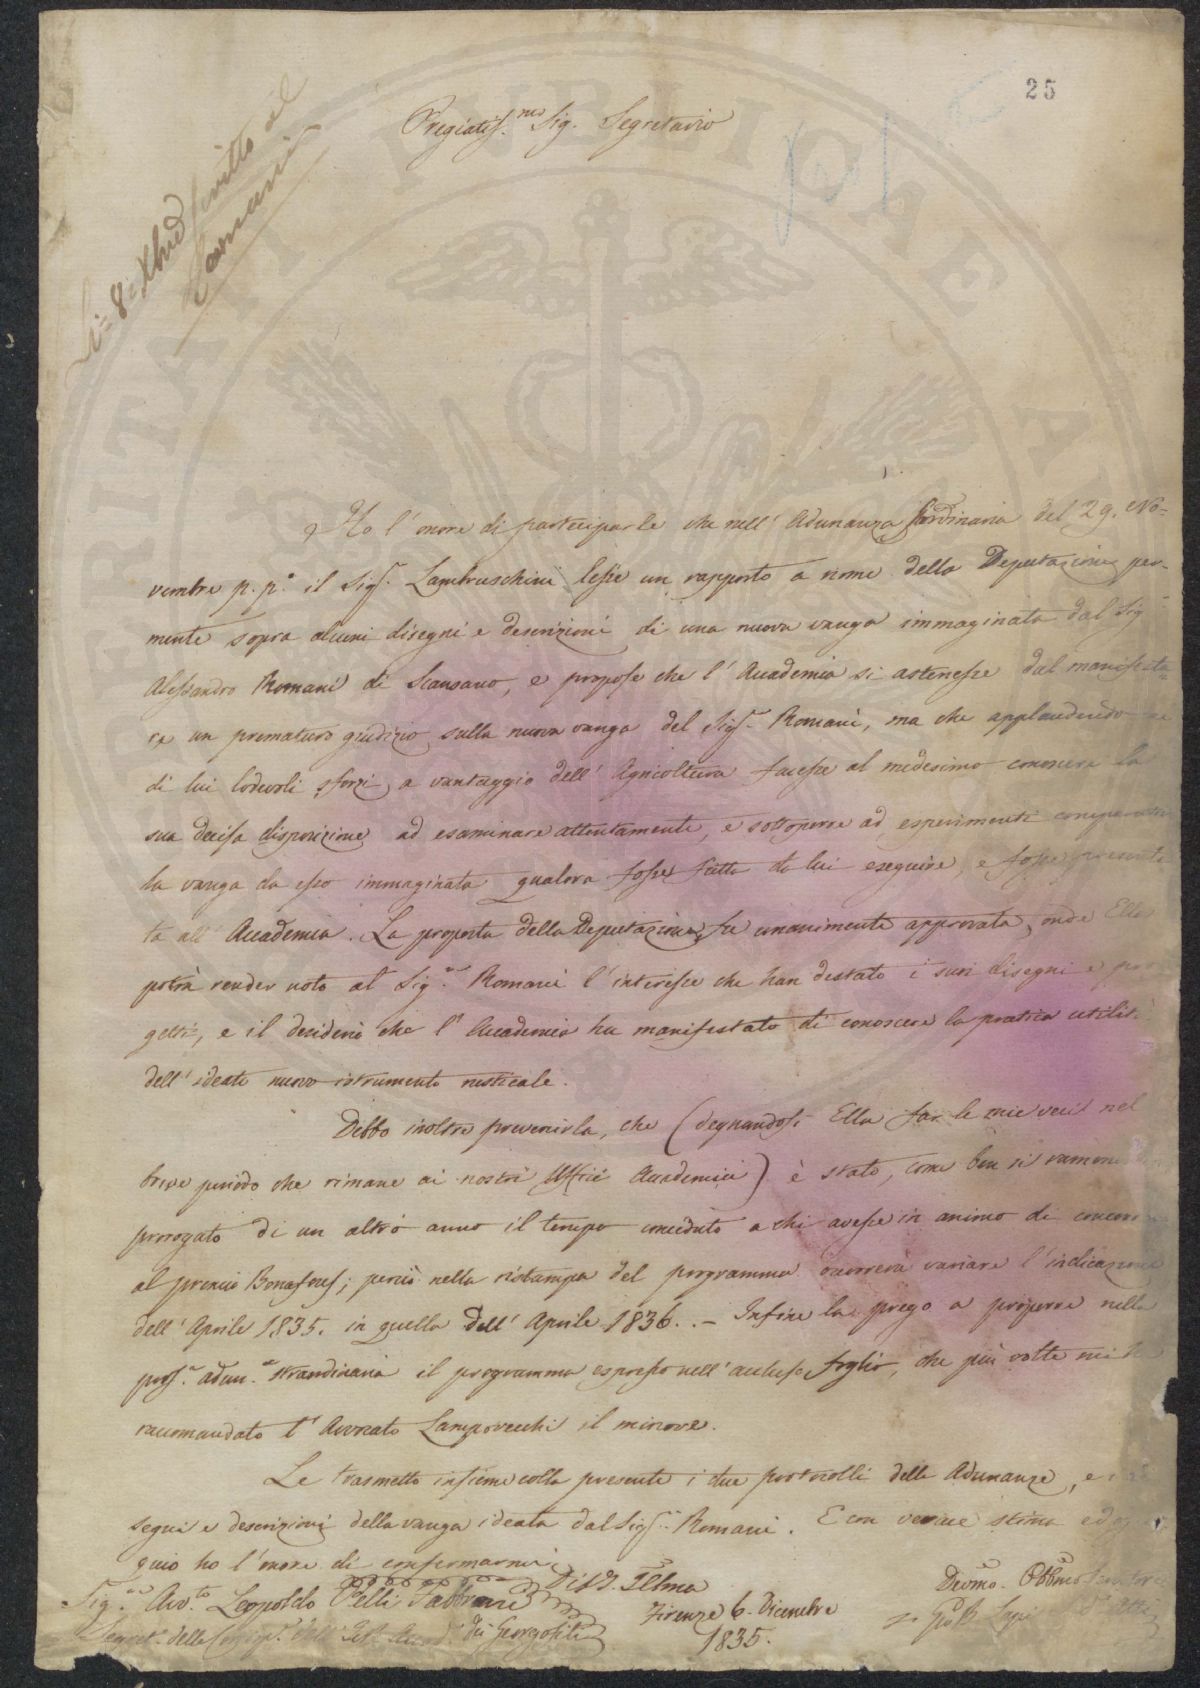 25
Pregiatis.mo Sig. Segretario
Li 8 Xbre scritto al
Romani
Ho l'onore di partecipare che nell'Adunanza ordinaria del 29. No=
vembre p.p.o il Sigr. Lambruschini lesse un rapporto a nome della Deputazione per-
mente sopra alcuni disegni e descrizioni di una nuova vanga immaginata dal Sigr
Alessandro Romani di Scansano, e propose che l'Accademia si astenesse dal manifesta
re un prematuro giudizio sulla nuova vanga del Sigr. Romani, ma che applaudendo
di lui lodevoli sforzi a vantaggio dell'Agricoltura facesse al medesimo conoscere la
sua decisa disposizione ad esaminare attentamente, e sottoporre ad esperimenti comparativi
la vanga da esso immaginata qualora fosse fatta da lui eseguire, e fosse presenta
ta all'Accademia. La proposta della Deputazione fu unanimente approvata, onde Ella
potrà render noto al Sigr. Romani l'interesse che han destato i suoi disegni e pro
getti, e il desiderio che l'Accademia ha manifestato di conoscere la pratica utilità
dell'ideato nuovo istrumento rusticale.
Debbo inoltre prevenirla, che (degnandosi Ella far le mie veci nel
breve periodo che rimane ai nostri Uffici Accademici) è stato, come ben si
prorogato di un altro anno il tempo conceduto a chi avesse in animo di concorrere
al premio Bonafous; perciò nella ristampa del programma dovrà variare l'indicazione
dell'Aprile 1835. in quella dell'Aprile 1836. - Infine la prego a proporre nella
pross.a adun.a straordinaria il programma espresso nell'accluso foglio, che più volte mi ha
raccomandato l'Avvocato Lamporecchi il minore.
Le trasmetto insieme colla presente i due protocolli delle Adunanze, e i di
segni e descrizioni della vanga ideata dal Sigr. Romani. E con verace stima ed osse
quio ho l'onore di confermarmi
Di V.S. Illma
Sigr. Avv.to Leopoldo Pelli Fabbroni
Segret. delle Corrisp. dell' Accad. dei Georgofili
Firenze 6. Dicembre
1835.
Devmo. Obbmo Servitore